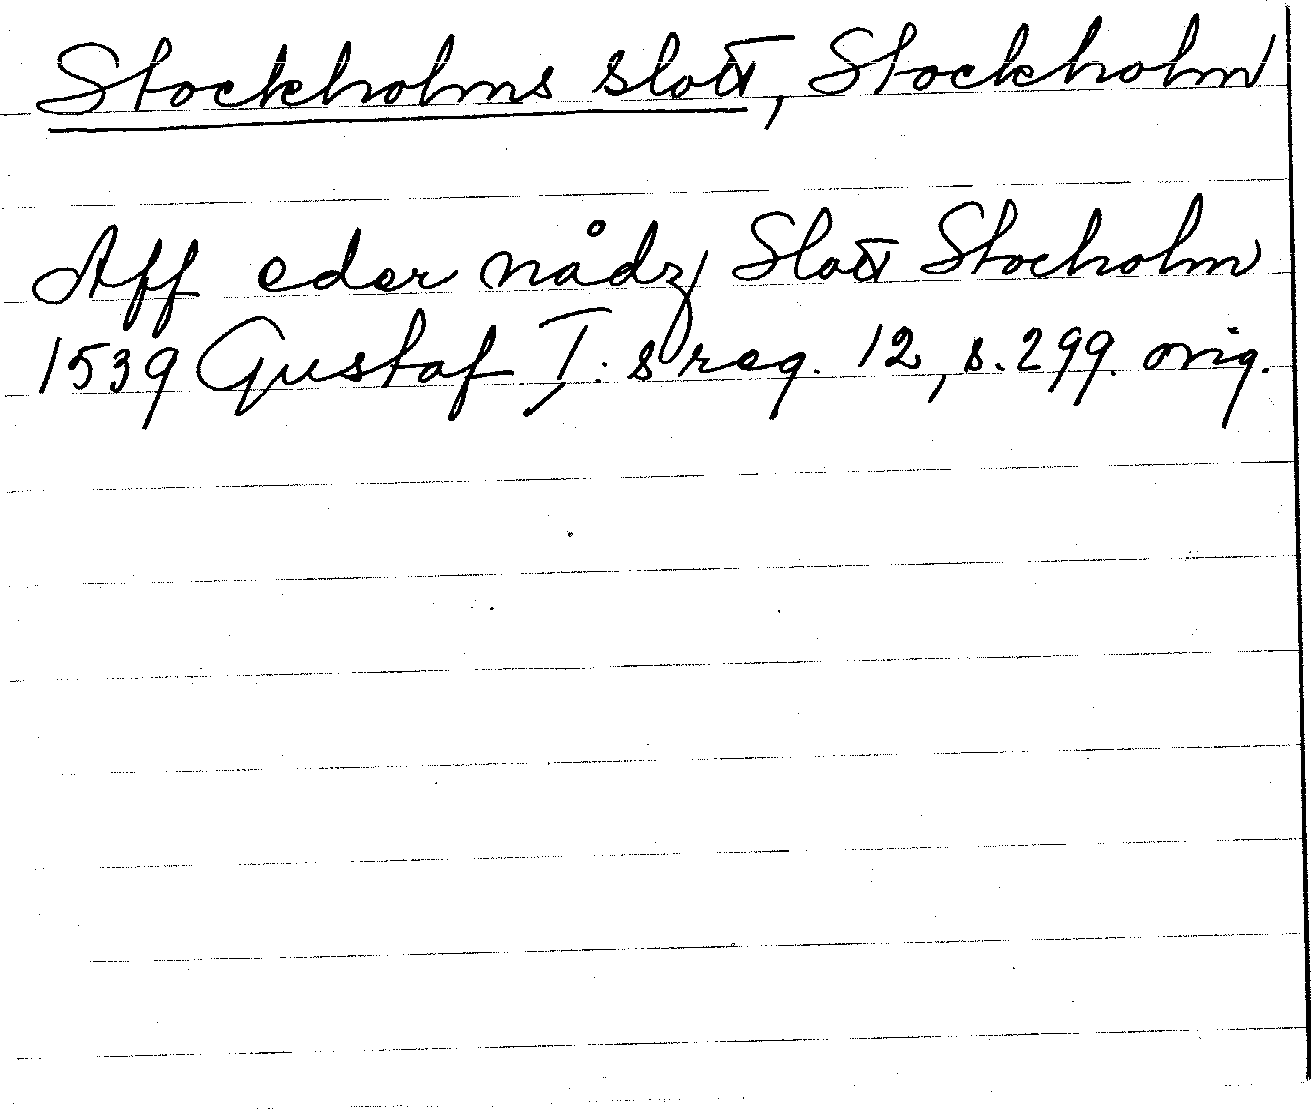 Stockholms slott, Stockholm
Aff eder nådz Slott Stocholm
1539 Gustaf I:s reg. 12, s. 299. orig.